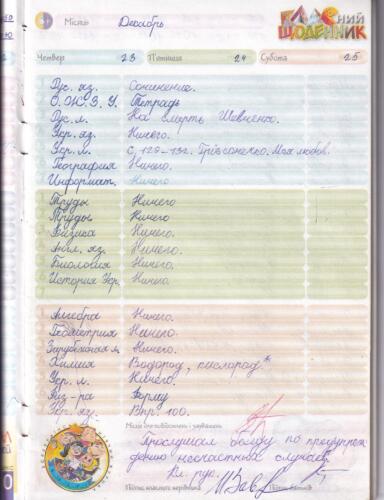 Місяць Декабрь
КЛАСний
ЩОДЕННИК
Четвер 23 П'ятниця 24 Субота 25
Рус. яз. Сочинение.
О.Ж.З.У. Тетрадь
Рус. л. На смерть Шевченко.
Укр. яз. Ничего.
Укр. л. с. 129-132. Грінченко. Моя любов.
География Ничего.
Информат. Ничего
Труды Ничего
Труды Ничего
Физика Ничего.
Англ. яз. Ничего.
Биология Ничего.
История Укр. Ничего.
Алгебра Ничего.
Геометрия Ничего.
Зарубежная л. Ничего.
Химия Водород, кислород.
Укр. л. Ничего.
Физ-ра Форму
Укр. яз. Впр. 100.
Місце для повідомлень і зауважень
Прослушал беседу по предупреж
дению несчастных случаев.
Кл. рук.
Підпис класного керівника